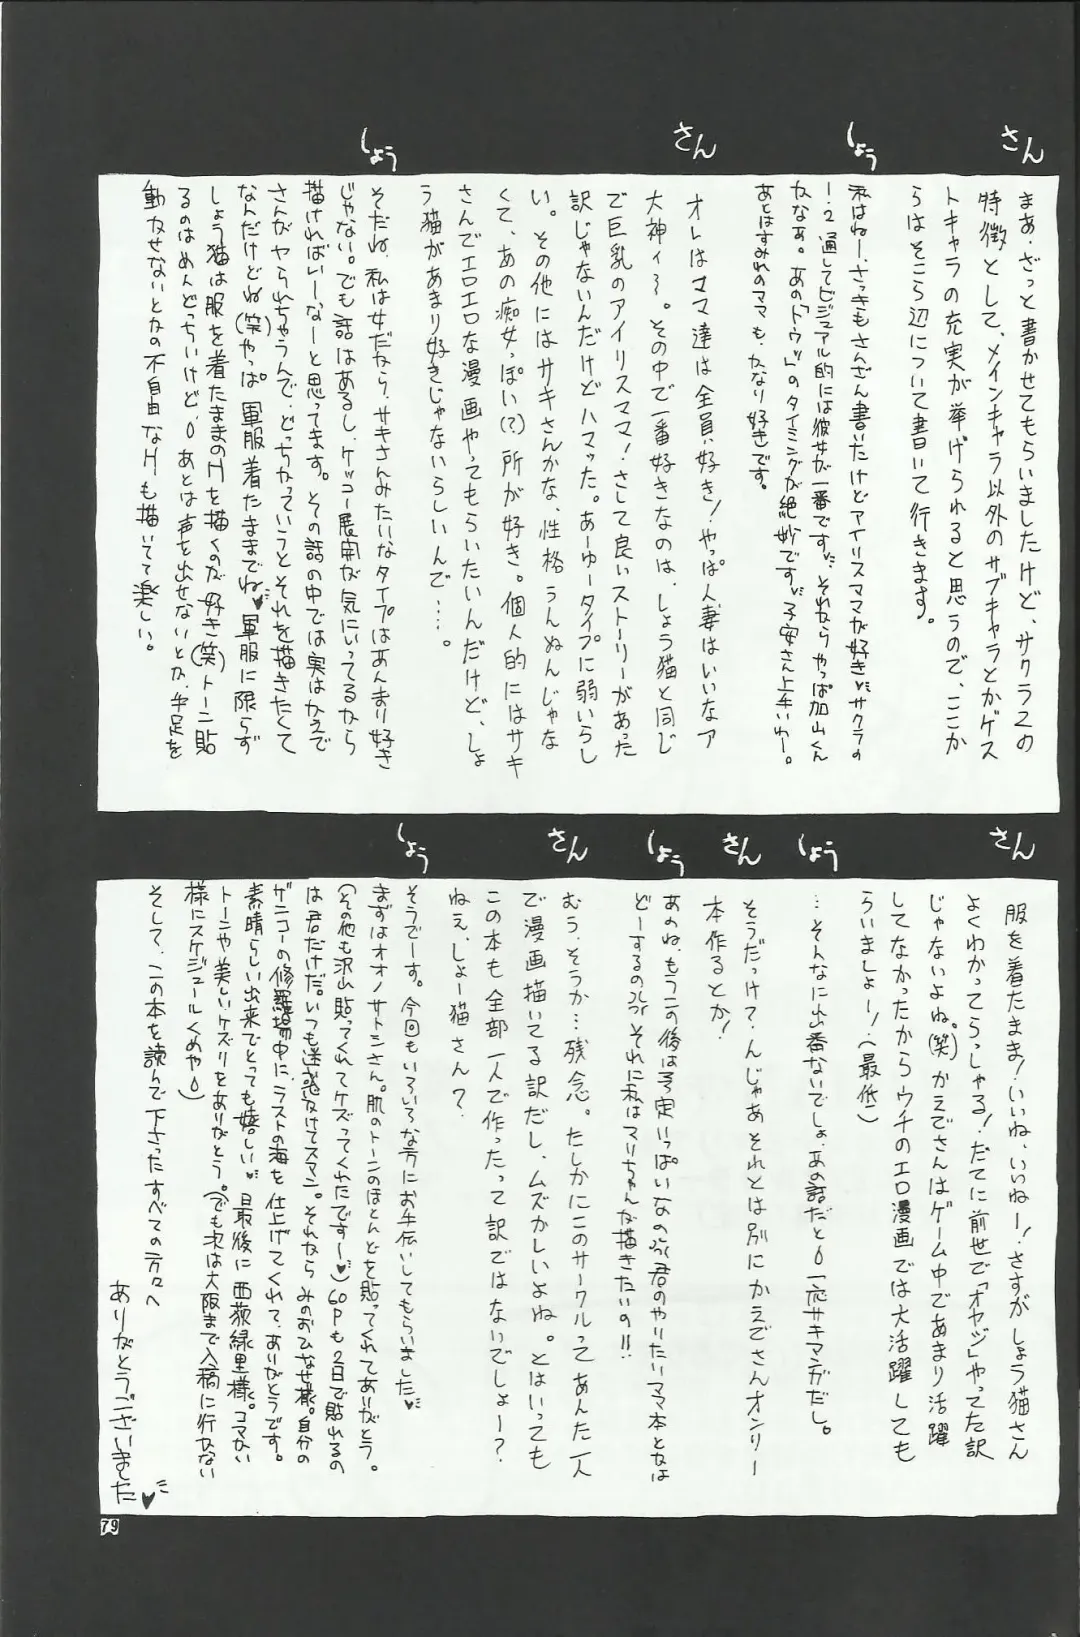 さん
まあ、ざっと書かせてもらいましたけど、サクラ2の
特徴として、メインキャラ以外のサブキャラとかゲス
トキャラの充実が挙げられると思うので、ここか
らはそこら辺について書いて行きます。
しょう
私はねー、さっきもさんざん書いたけどアイリスママが好き♥サクラの
1・2通してビジュアル的には彼女が一番です♥それならやっぱ加山くん
かなぁ。あの「トウッ!」のタイミングが絶妙です♥子安さん上手いわー。
あとはすみれのママも、かなり好きです。
さん
オレはママ達は全員好き!やっぱ人妻はいいなァ
大神ィ〜。その中で一番好きなのは、しょう猫と同じ
で巨乳のアイリスママ!さして良いストーリーがあった
訳じゃないんだけどハマッた。あーゆータイプに弱いらし
い。その他にはサキさんかな、性格うんぬんじゃな
くて、あの痴女っぽい(?)所が好き。個人的にはサキ
さんでエロエロな漫画やってもらいたいんだけど、しょ
う猫があまり好きじゃないらしいんで…。
しょう
そだね、私は女だから、サキさんみたいなタイプはあんまり好き
じゃない。でも話はあるし、ケッコー展開が気にいってるから
描ければいーなーと思ってます。その話の中では実はかえで
さんがヤられちゃうんで、どっちかっていうとそれを描きたくて
なんだけどね(笑)やっぱ軍服着たままでね♥軍服に限らず
しょう猫は服を着たままのHを描くのが好き(笑)トーン貼
るのはめんどっちいけど。あとは声を出せないとか、手足を
動かせないとかの不自由なHも描いてて楽しい。
さん
服を着たまま!いいね、いいねー!さすがしょう猫さん
よくわかってらっしゃる!だてに前世で「オヤジ」やってた訳
じゃないよね。(笑)かえでさんはゲーム中であまり活躍
してなかったからウチのエロ漫画では大活躍しても
らいましょー!(最低)
しょう
…そんなに出番ないでしょ、あの話だと。一応サキマンガだし。
さん
そうだっけ?んじゃあそれとは別にかえでさんオンリー
本作るとか!
しょう
あのね、もうこの後は予定いっぱいなの 君のやりたいママ本とかは
どーするの それに私はマリちゃんが描きたいの!!
さん
むう、そうか…残念。たしかにこのサークルってあんた一人
で漫画描いてる訳だし、ムズかしいよね。とはいっても
この本も全部一人で作ったって訳ではないでしょー?
ねえ、しょー猫さん?
しょう
そうでーす。今回もいろいろな方にお手伝いしてもらいました♥
まずはオオノサトシさん。肌のトーンのほとんどを貼ってくれてありがとう。
(その他も沢山貼ってくれてケズってくれたです〜♥)60Pも2日で貼れるの
は君だけだ。いつも迷惑かけてスマン。それから みのおひなせ様。自分の
ザニコーの修羅場中に、ラストの海を仕上げてくれて、ありがとうです。
素晴らしい出来でとっても嬉しい♥最後に西荻緑里様。コマかい
トーンや美しいケズリをありがとう。(でも次は大阪まで入稿に行かない
様にスケジュールくめや)
そして、この本を読んで下さったすべての方々へ
ありがとうございました♥
79